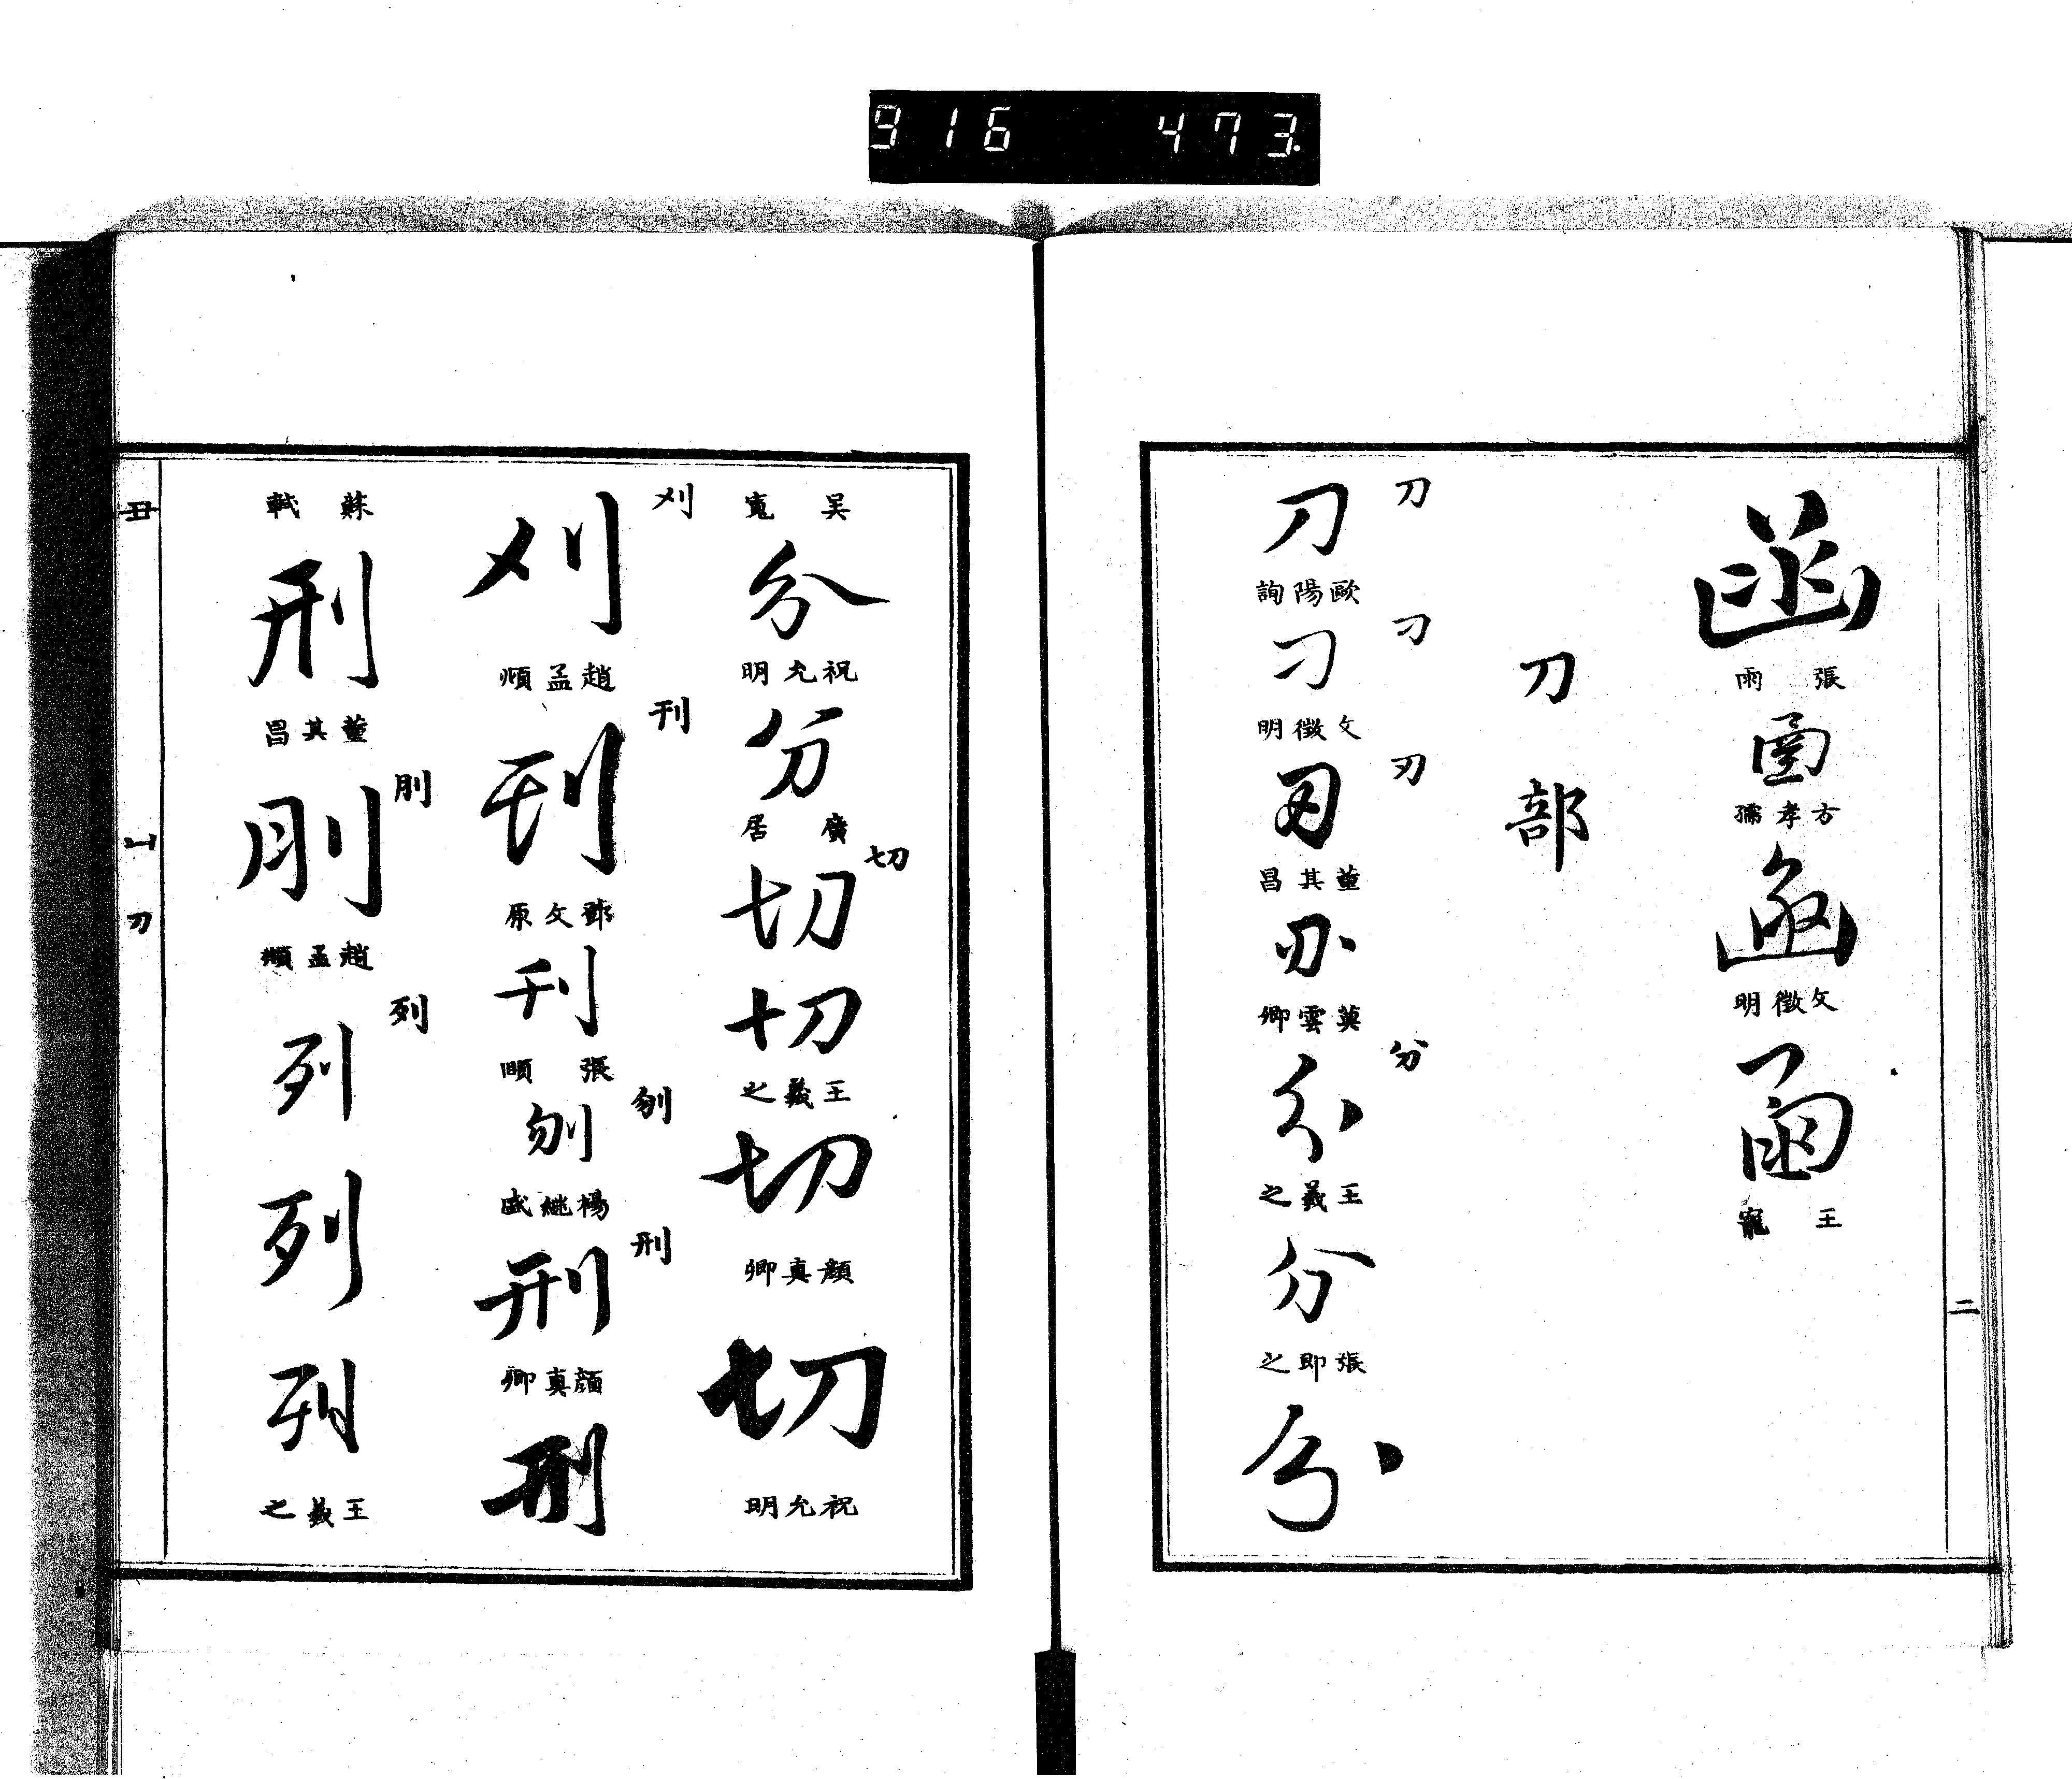 916 473.
函
張雨
函
方孝孺
函
文徵明
函
王寵
二
刀部
刀
刀
歐陽詢
刁
刁
文徵明
刃
刃
董其昌
刃
莫雲卿
分
分
王羲之
分
張即之
分
吴寬
分
祝允明
分
唐居
切
切
切
王羲之
切
顏真卿
切
祝允明
刈
刈
趙孟頫
刊
刊
鄧文原
刊
張頤
刎
楊繼盛
刑
刑
顏真卿
刑
蘇軾
刑
董其昌
刖
刖
趙孟頫
列
列
列
列
王羲之
丑
刀